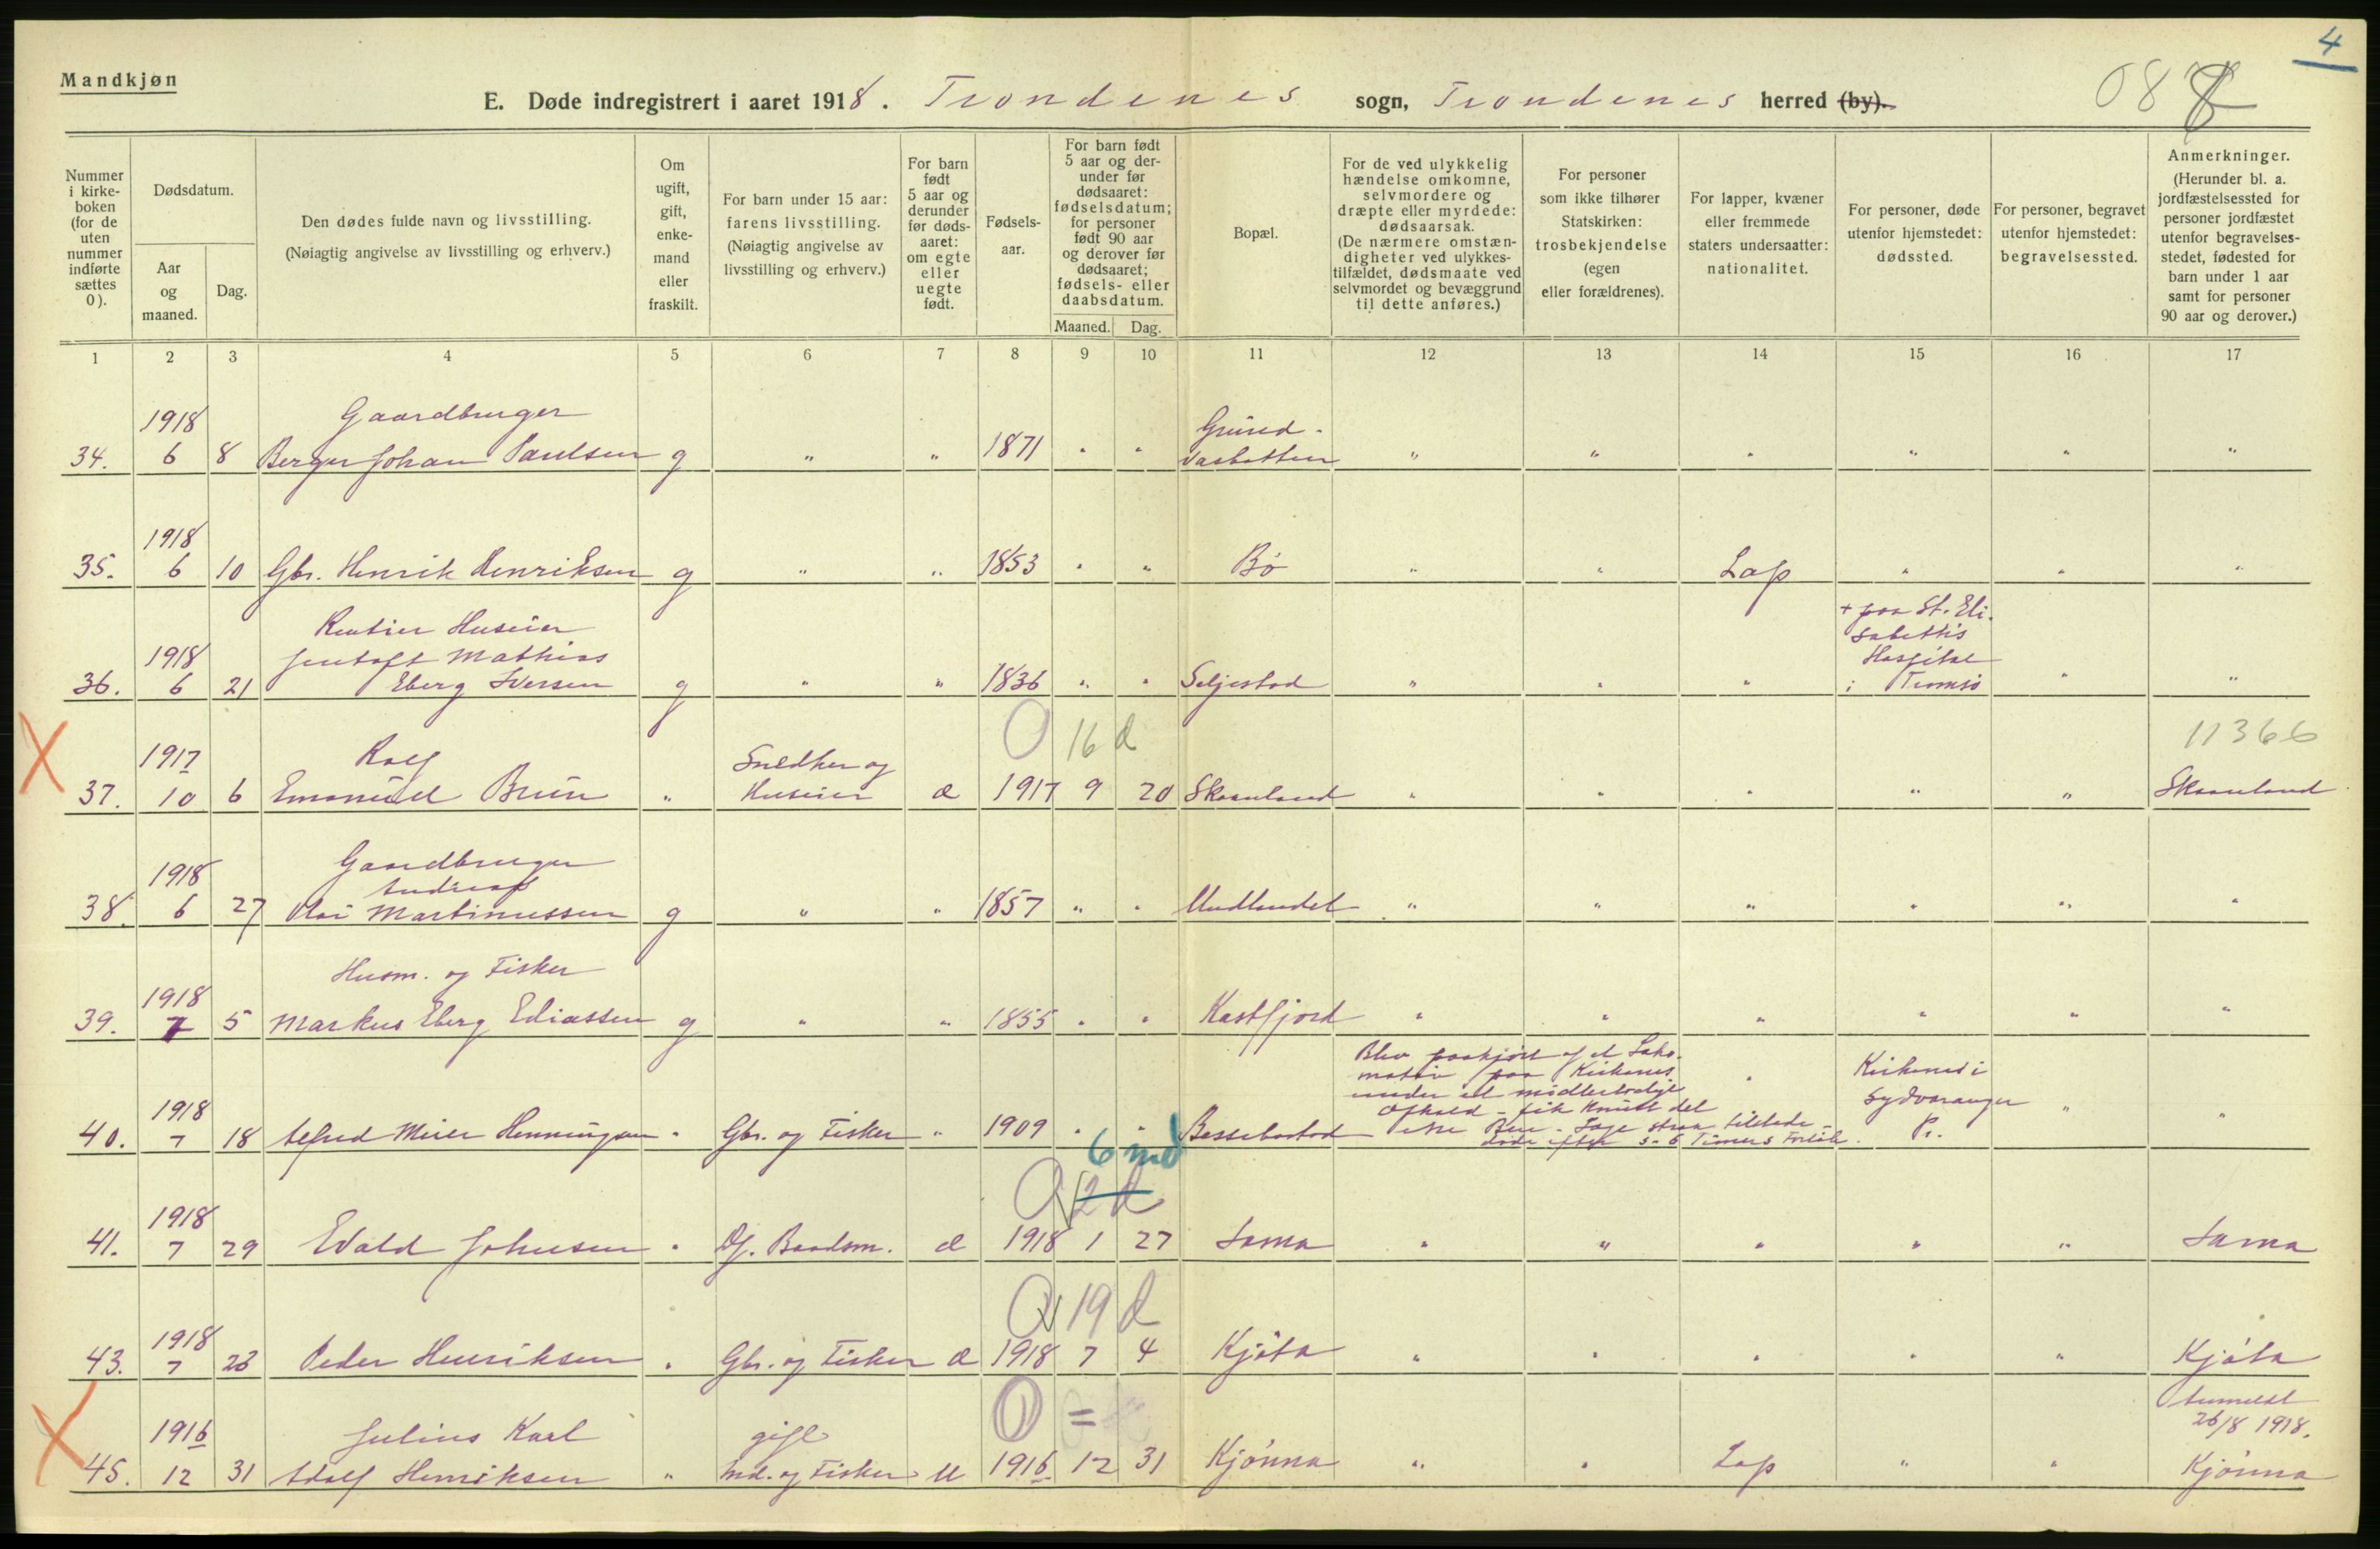 4
Mandkjøn
E. Døde indregistrert i aaret 1918. Trondenes sogn, Trondenes herred (by).
08
Nummer i kirkeboken (for de uten nummer indførte sættes 0).
Dødsdatum.
Aar og maaned.
Dag.
Den dødes fulde navn og livsstilling.
(Nøiagtig angivelse av livsstilling og erhverv.)
Om ugift, gift, enkemand eller fraskilt.
For barn under 15 aar: farens livsstilling.
(Nøiagtig angivelse av livsstilling og erhverv.)
For barn født 5 aar og derunder før dødsaaret: om egte eller uegte født.
Fødselsaar.
For barn født 5 aar og derunder før dødsaaret: fødselsdatum; for personer født 90 aar og derover før dødsaaret; fødsels- eller daabsdatum.
Maaned. Dag.
Bopæl.
For de ved ulykkelig hændelse omkomne, selvmordere og dræpte eller myrdede: dødsaarsak.
(De nærmere omstændigheter ved ulykkestilfældet, dødsmaate ved selvmordet og bevæggrund til dette anføres.)
For personer som ikke tilhører Statskirken: trosbekjendelse (egen eller forældrenes).
For lapper, kvæner eller fremmede staters undersaatter: nationalitet.
For personer, døde utenfor hjemstedet: dødssted.
For personer, begravet utenfor hjemstedet: begravelsessted.
Anmerkninger.
(Herunder bl. a. jordfæstelsessted for personer jordfæstet utenfor begravelsesstedet, fødested for barn under 1 aar samt for personer 90 aar og derover.)
1 2 3 4 5 6 7 8 9 10 11 12 13 14 15 16 17
1918 Gaardbruger
34. 6 8 Berger Johan Paulsen g " " 1871 " " Grund-vasbotten " " " " " "
1918
35. 6 10 Gbr. Henrik Henriksen g " " 1853 " " Bø " " Lap " " "
Rentier Huseier
1918 Jentoft Mathias
36. 6 21 Eberg Iversen g " " 1836 " " Seljestad " " " + paa St. Elisabeths Hospital i Tromsø " "
0 16 d 11366
1917 Rolf Snedker og
37. 10 6 Emanuel Bruun " Huseier æ 1917 9 20 Skaanland " " " " " Skaanland
Gaardbruger
1918 Andreas
38. 6 27 Olai Martinussen g " " 1857 " " Undlandet " " " " " "
Husm. og Fisker
1918
39. 7 5 Markus Eberg Eliassen g " " 1855 " " Kastfjord " " " " " "
1918
40. 7 18 Alfred Meier Henningsen " Gbr. og Fisker " 1909 " " Bessebostad Blev paakjørt af et Lokomotiv paa Kirkenes under et midlertidigt Ophold - fik knust det ene Ben - Læge straks tilstede - døde efter 5-6 Timers Forløb. " Kirkenes i Sydvaranger Pr. " "
6 md
0 2 d
1918
41. 7 29 Edvald Johnsen " Df. Baadsm. æ 1918 1 27 Sama " " " " " Sama
0 19 d
1918
43. 7 23 Peder Henriksen " Gbr. og Fisker æ 1918 7 4 Kjøta " " " " " Kjøta
0 =
Anmeldt 26/8 1918.
1916 Julius Karl gift
45. 12 31 Adolf Henriksen " Ind. og Fisker u 1916 12 31 Kjønna " " Lap " " Kjønna